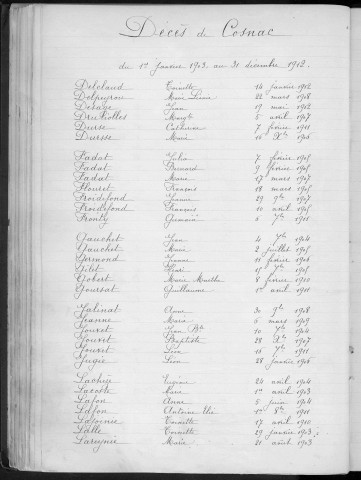 Décès de Cosnac
du 1er Janvier 1903 au 31 décembre 1912.
Delclaud Toinette 14 janvier 1912
Delpeyrou Marie 22 mars 1908
Jean 19 mai 1912
Marg 5 avril 1907
Durse Catherine 7 février 1911
Dursse Marie 16 Xbre 1906
Fadat Julia 7 février 1905
Fadat Bernard 9 février
Fadat Maria 17 mars 1907
Flouret François 18 mars 1905
Froidefond 29 9bre 1907
Froidefond François 10 avril
Fronty Germain 6 7bre 1911
Gauchet Jean 4 7bre 1904
Gauchet Marie 2 juillet 1905
Germond 10 février 1906
Gilet Henri 15 1907
Gobert Marie 8 février 1910
Goursat Guillaume 1er avril 1911
Jalinat Anne 30 9bre 1908
Jeanne Marie 6 mars 1909
Jouvet Jean Bte 10 7bre 1904
Jouvet Baptiste 28 Xbre 1907
Jouvet Léon 16 7bre 1911
Jugie Léon 28 janvier 1906
Lachèze Eugène 24 avril 1904
Lacoste 1er avril 1903
Lafon Anna 5 juin 1904
Lafon Antoine 1er 8bre 1911
Toinette 17 avril 1910
Lalle Toinette 29 janvier 1903
Lareynie Marie 21 août 1903